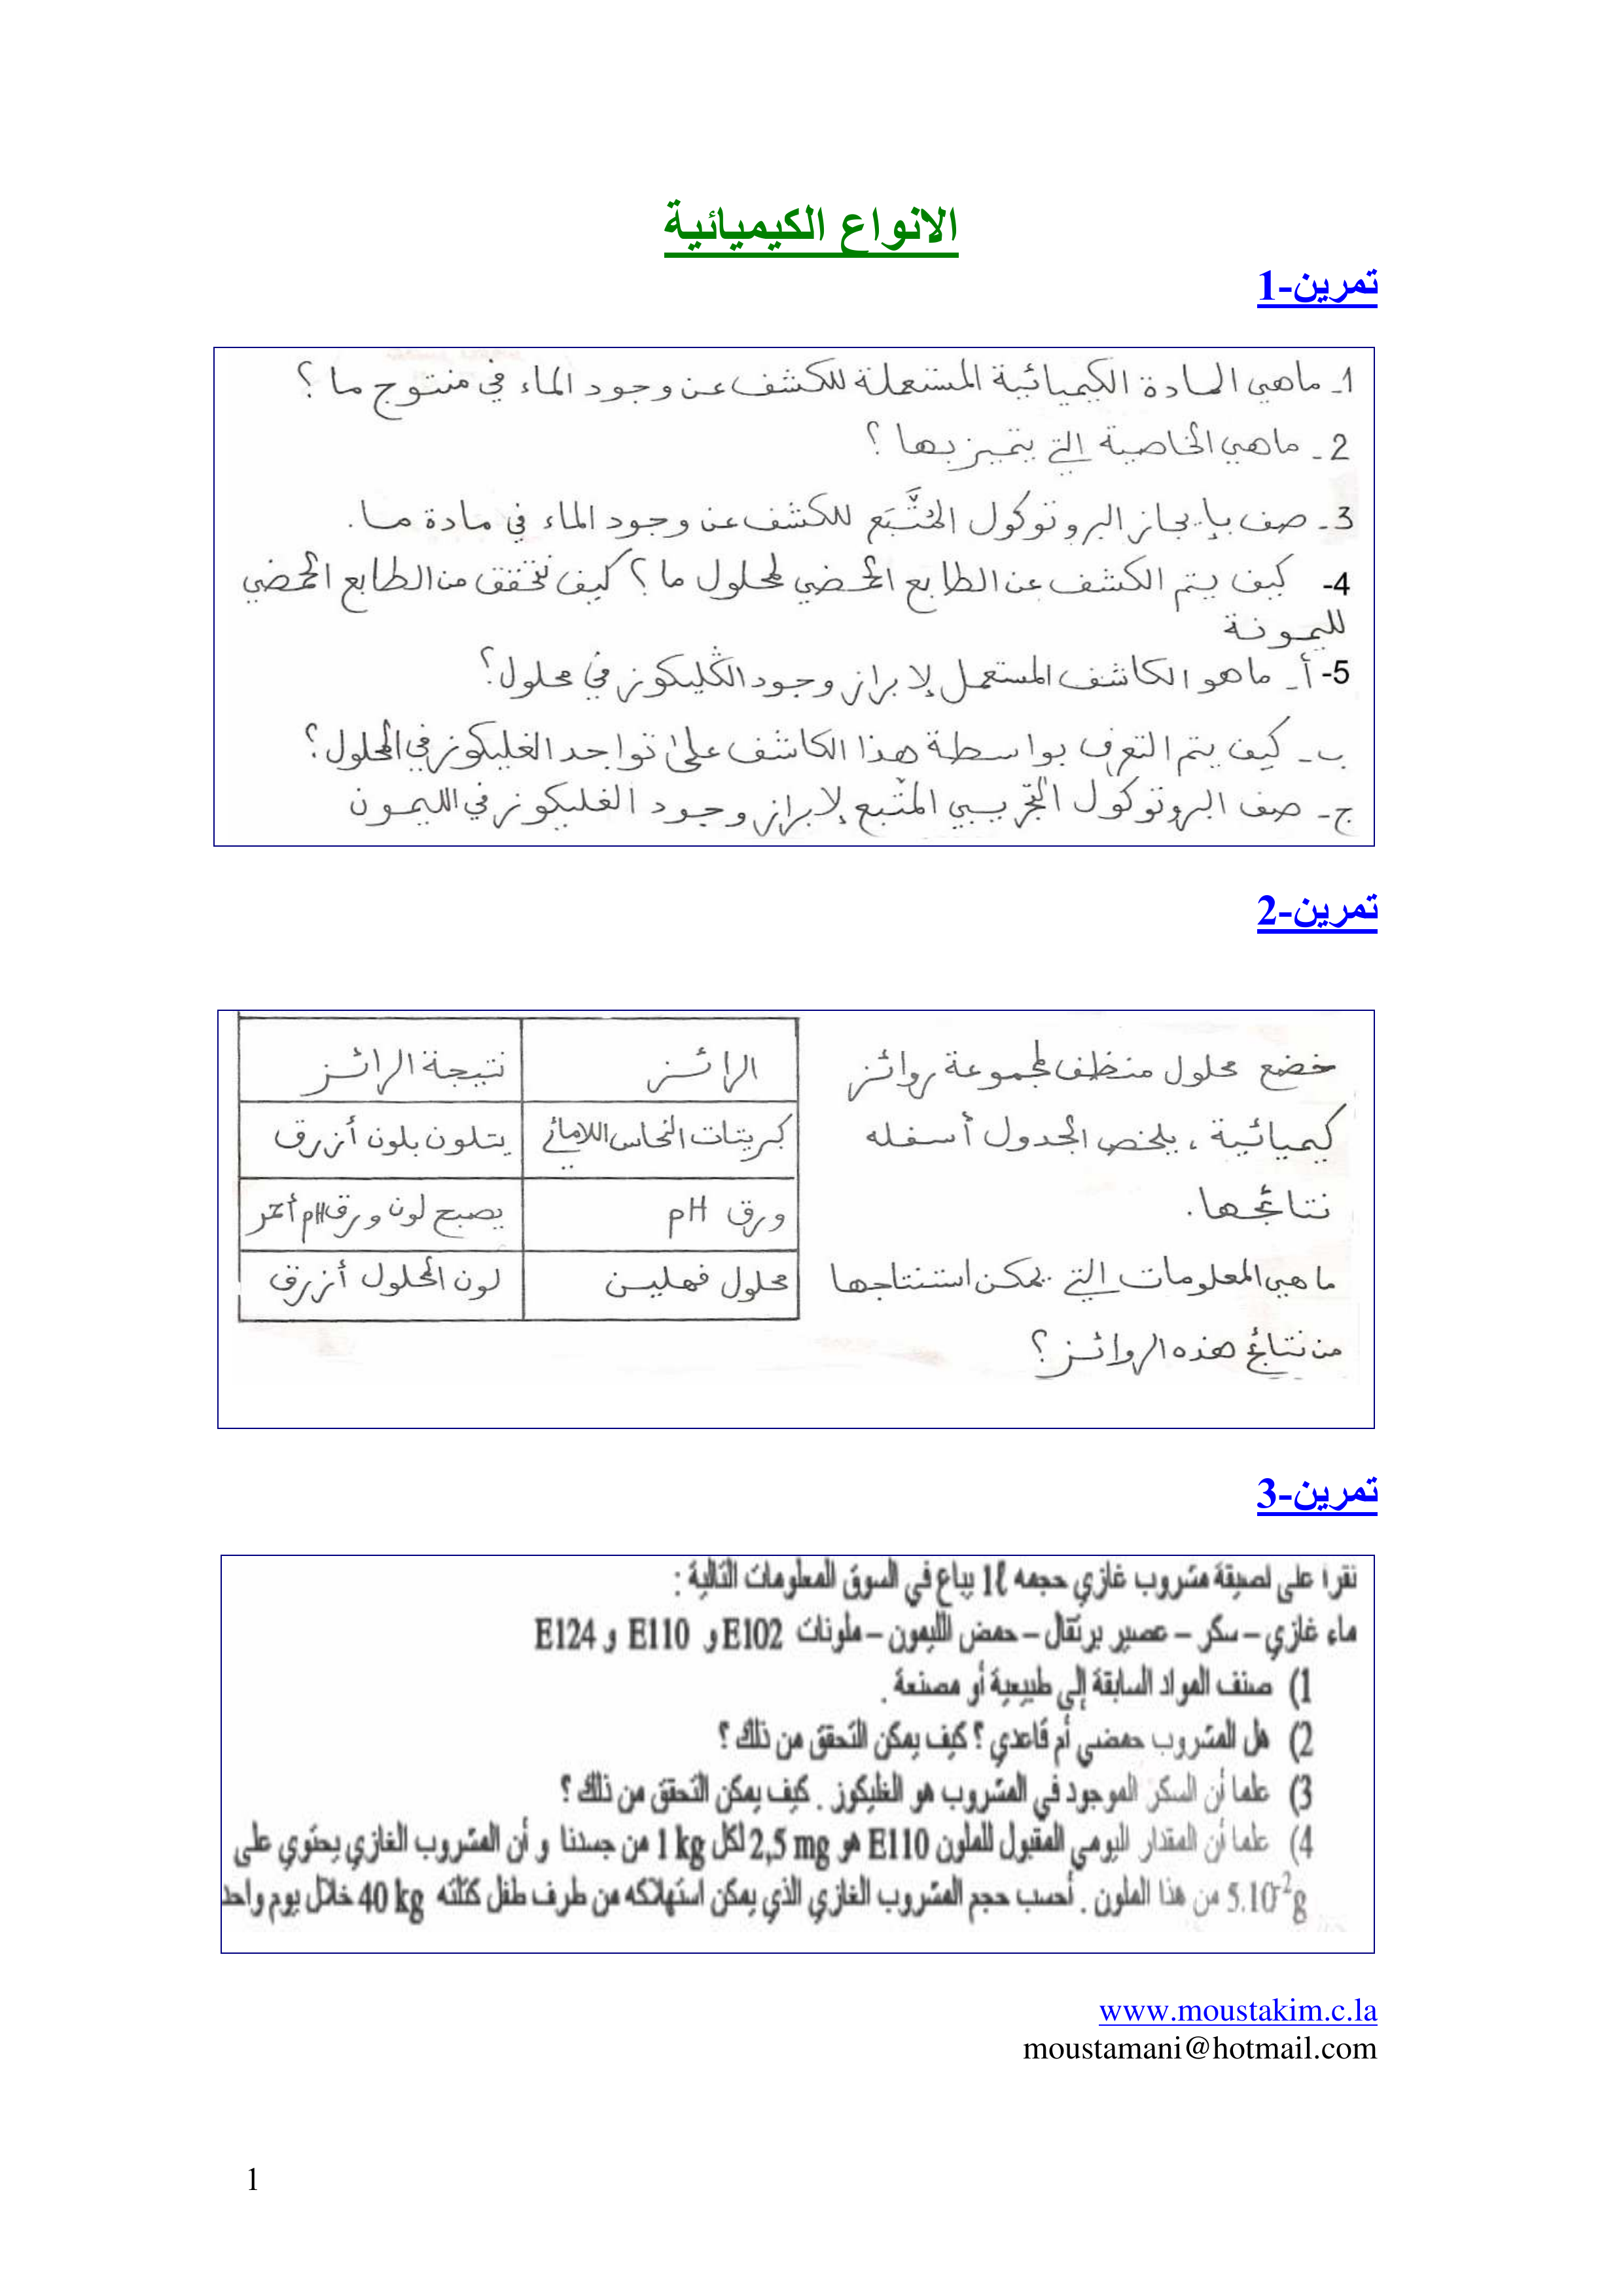 الانواع الكيميائية
تمرين-1
1- ماهي المادة الكيميائية المستعملة للكشف عن وجود الماء في منتوج ما ؟
2- ماهي الخاصية التي يتميز بها ؟
3- صف بإيجاز البروتوكول المتَّبَع للكشف عن وجود الماء في مادة ما.
4- كيف يتم الكشف عن الطابع الحمضي لمحلول ما ؟ كيف نتحقق من الطابع الحمضي
لليمونة
5- أ- ماهو الكاشف المستعمل لإبراز وجود الݣليكوز في محلول؟
ب- كيف يتم التعرف بواسطة هذا الكاشف على تواجد الغليكوز في المحلول؟
ج- صف البروتوكول التجريبي المتبع لإبراز وجود الغليكوز في الليمون
تمرين-2
خضع محلول منظف لمجموعة روائز
كيميائية ، يلخص الجدول أسفله
نتائجها.
ماهي المعلومات التي يمكن استنتاجها
من نتائج هذه الروائز ؟
الرائز نتيجة الرائز
كبريتات النحاس اللامائي يتلون بلون أزرق
ورق pH يصبح لون ورق pH أحمر
محلول فهلين لون المحلول أزرق
تمرين-3
نقرا على لصيقة مشروب غازي حجمه 1ℓ يباع في السوق المعلومات التالية :
ماء غازي – سكر – عصير برتقال – حمض الليمون – ملونات E102 و E110 و E124
1) صنف المواد السابقة إلى طبيعية أو مصنعة .
2) هل المشروب حمضي أم قاعدي ؟ كيف يمكن التحقق من ذلك ؟
3) علما أن السكر الموجود في المشروب هو الغليكوز . كيف يمكن التحقق من ذلك ؟
4) علما أن المقدار اليومي المقبول للملون E110 هو 2,5 mg لكل 1 kg من جسدنا و أن المشروب الغازي يحتوي على
5.10⁻²g من هذا الملون . أحسب حجم المشروب الغازي الذي يمكن استهلاكه من طرف طفل كتلته 40 kg خلال يوم واحد
www.moustakim.c.la
moustamani@hotmail.com
1